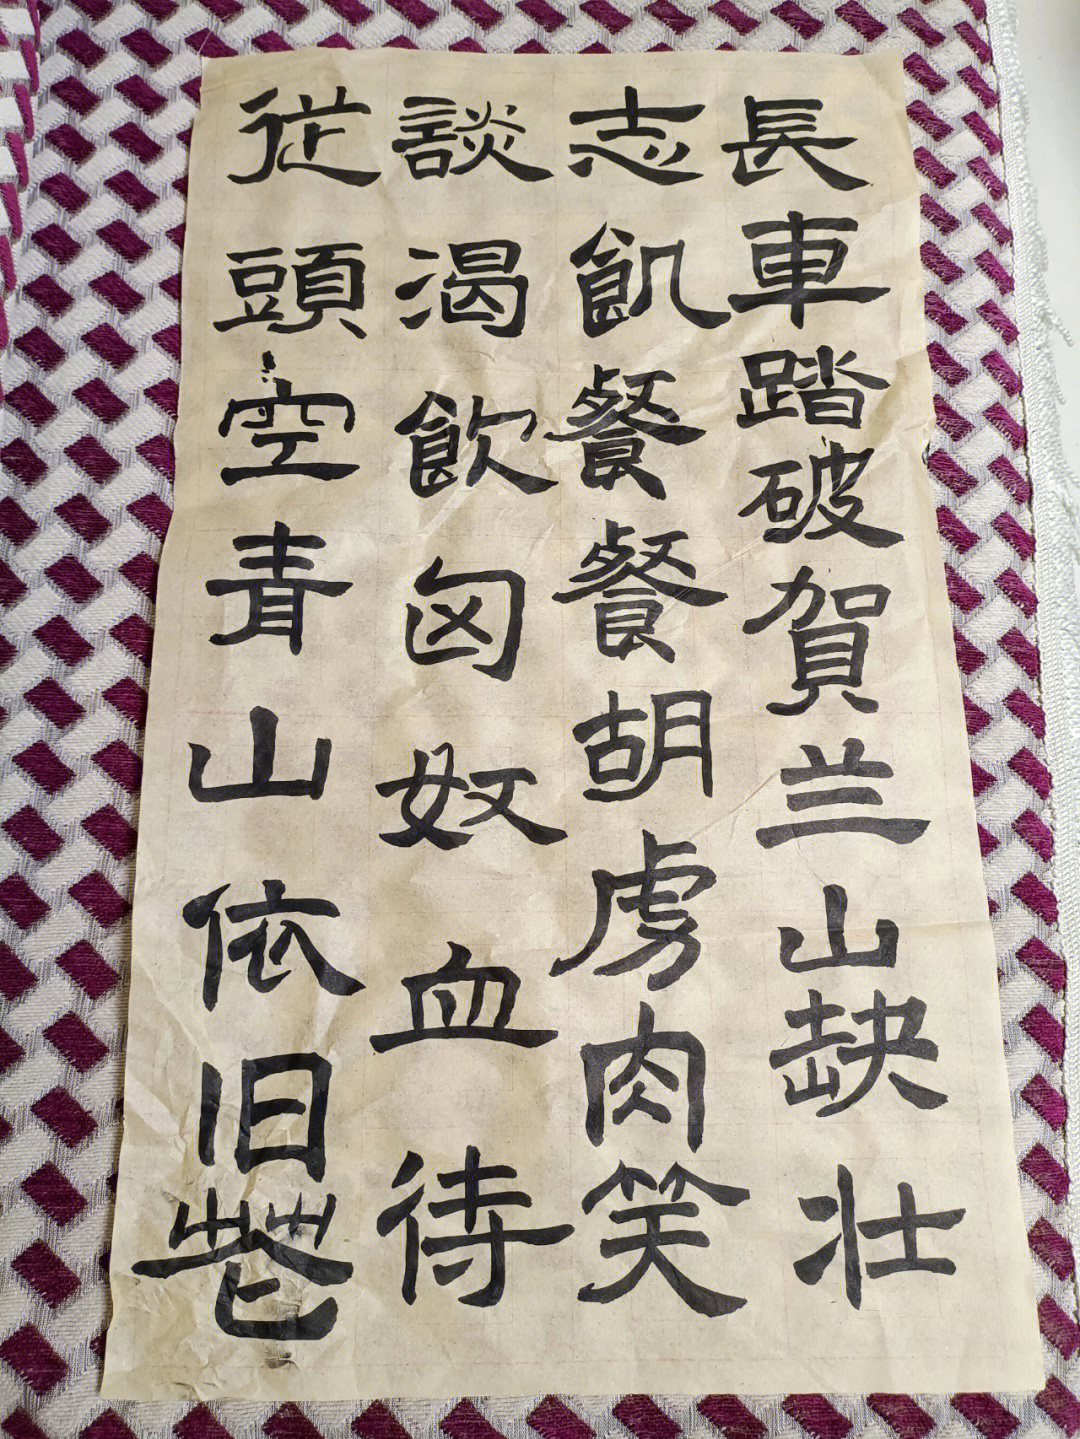 長車踏破賀兰山缺壮
志飢餐餐胡虏肉笑
談渴飲匈奴血待
従頭空青山依旧